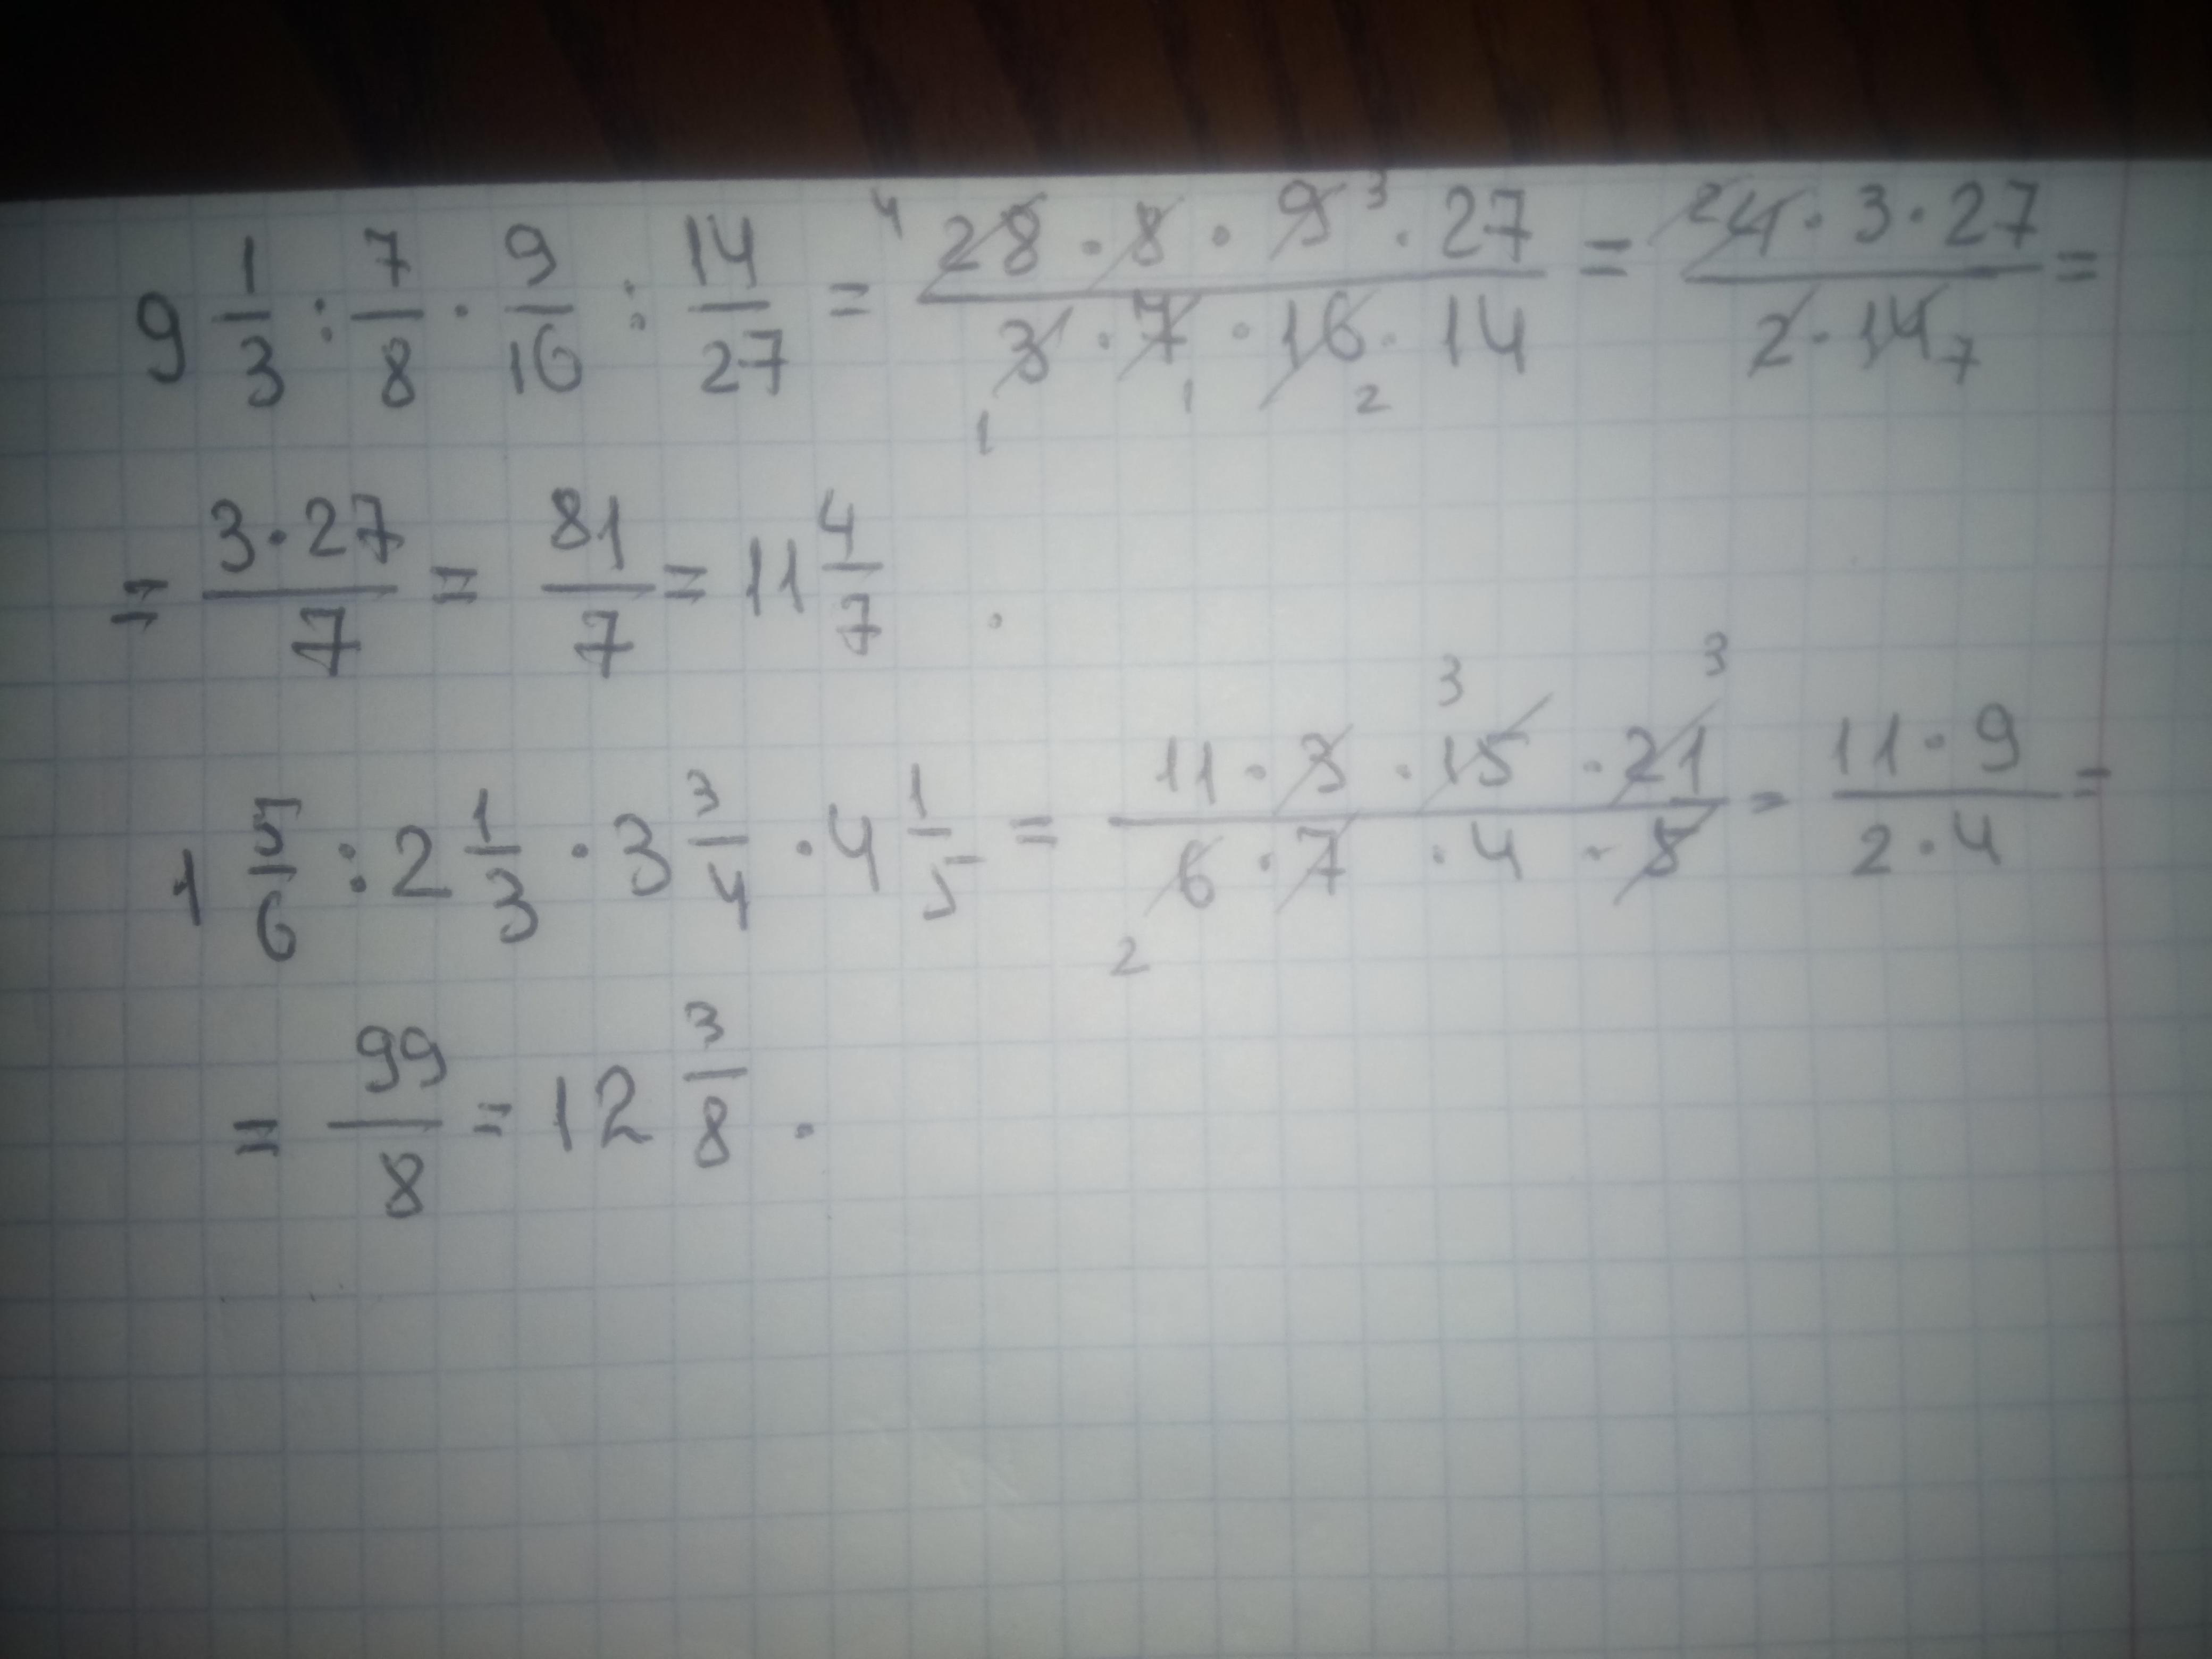 9 1/3 : 7/8 · 9/16 : 14/27 = (28 · 8 · 9 · 27)/(3 · 7 · 16 · 14) = (4 · 3 · 27)/(2 · 14) =
= (3 · 27)/7 = 81/7 = 11 4/7 .
1 5/6 : 2 1/3 · 3 3/4 · 4 1/5 = (11 · 3 · 15 · 21)/(6 · 7 · 4 · 5) = (11 · 9)/(2 · 4) =
= 99/8 = 12 3/8 .